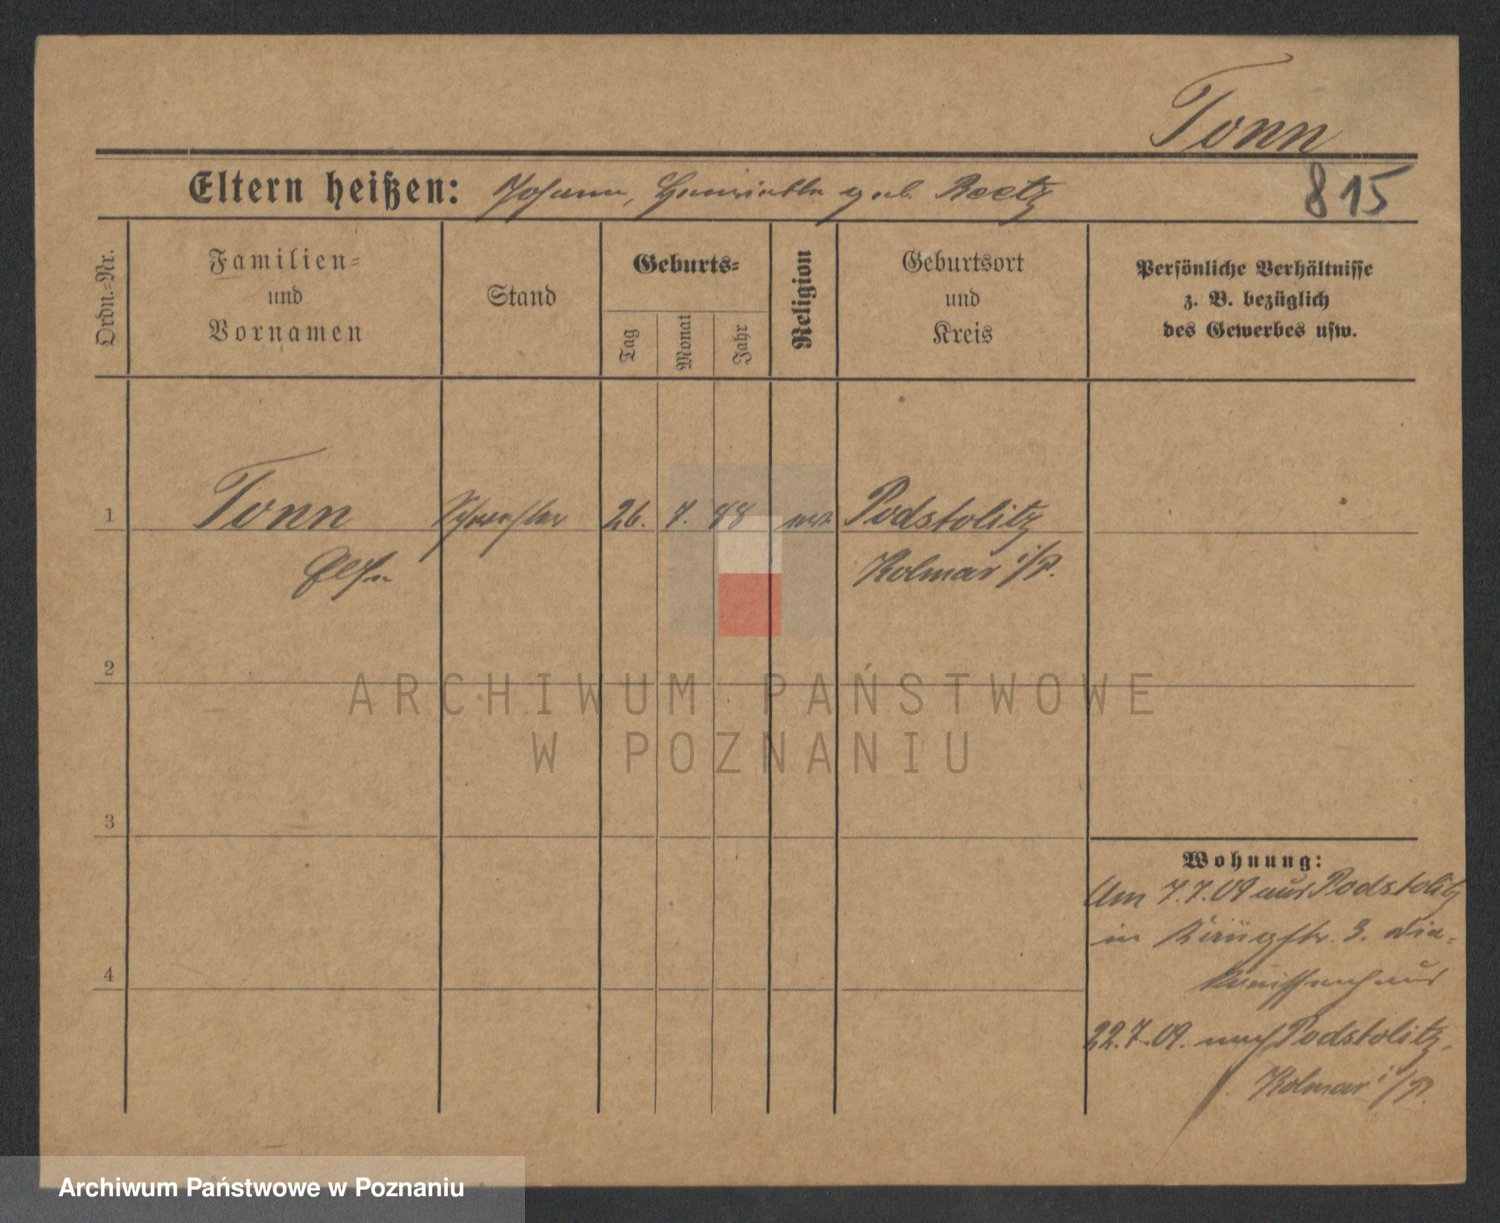 Tonn
815
Eltern heißen: Johann, Henriette geb. Reetz
Ordn.-Nr.
Familien-
und
Vornamen
Stand
Geburts-
Tag
Monat
Jahr
Religion
Geburtsort
und
Kreis
Persönliche Verhältnisse
z. B. bezüglich
des Gewerbes usw.
1
Tonn
Schwester
26. 7. 88
Podstolitz
Kolmar i/P.
2
3
4
ARCHIWUM PAŃSTWOWE
W POZNANIU
Wohnung:
Am 7.7.09 aus Podstolitz
in 3. Dia-
konissenhaus
22.7.09. nach Podstolitz,
Kolmar i/P.
Archiwum Państwowe w Poznaniu